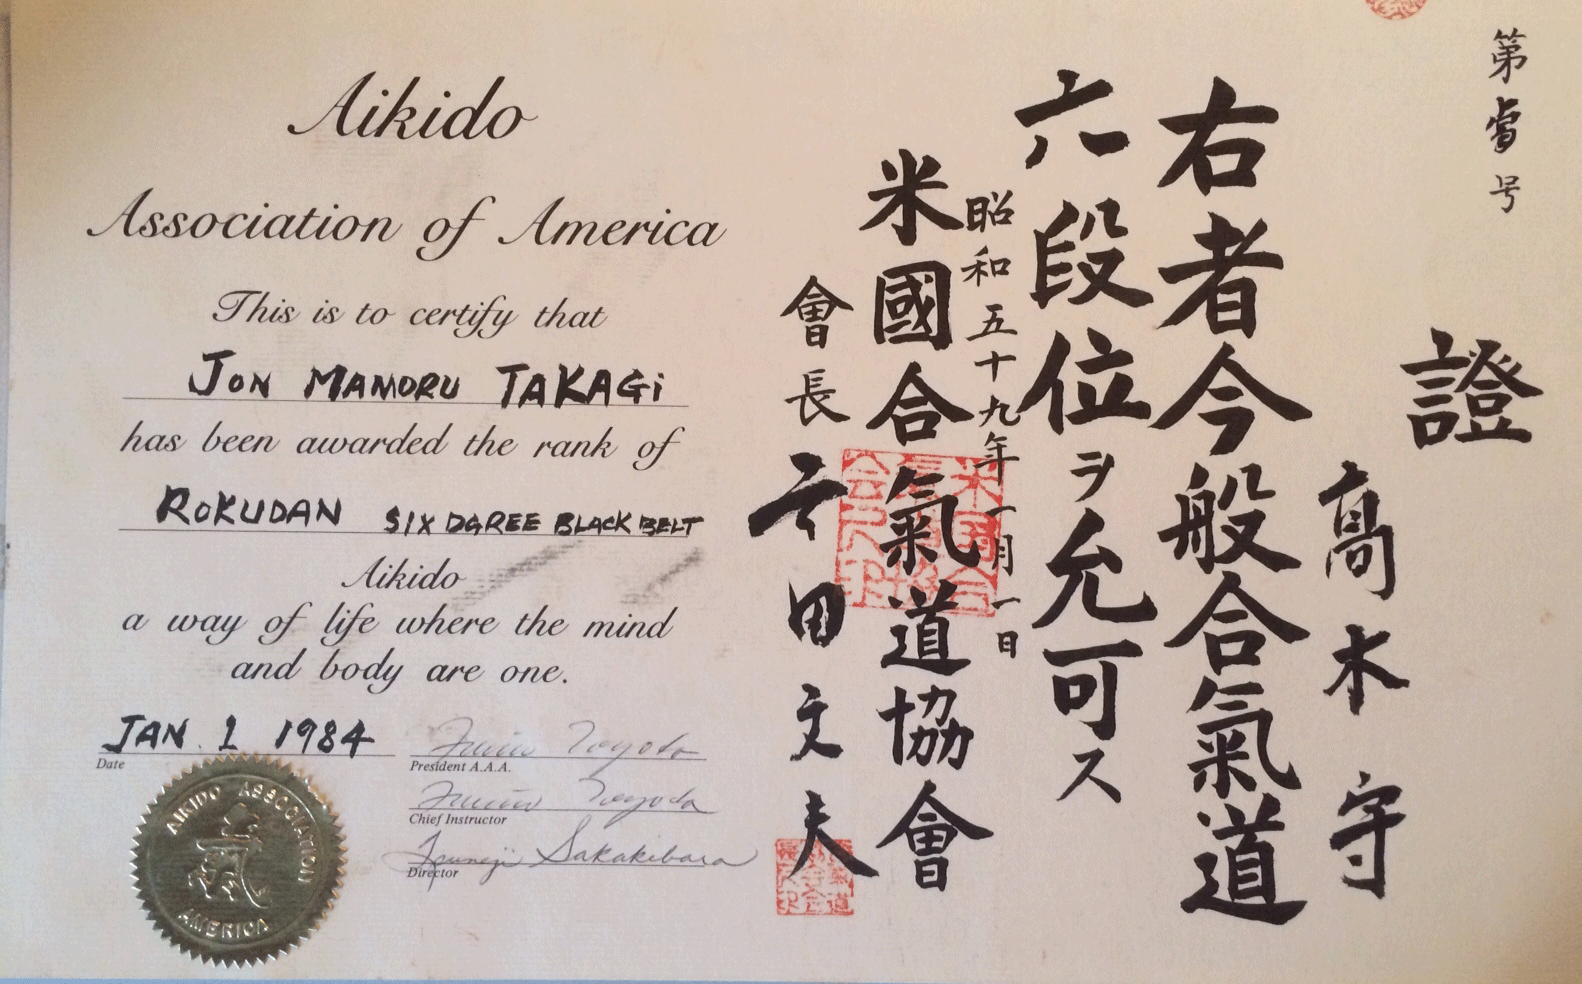 Aikido
Association of America
This is to certify that
JON MAMORU TAKAGi
has been awarded the rank of
ROKUDAN SIX DGREE BLACK BELT
Aikido
a way of life where the mind
and body are one.
JAN. 1 1984
Date
Fumio Toyoda
President A.A.A.
Fumio Toyoda
Chief Instructor
Sakakibara
Director
AIKIDO ASSOCIATION
AMERICA
第号
證
高木守
右者今般合氣道
六段位ヲ允可ス
昭和五十九年一月一日
米國合氣道協會
會長
田文夫